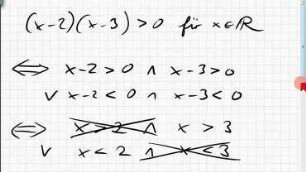 (x-2)(x-3)>0 für x∈ℝ
⟺ x-2>0 ∧ x-3>0
∨ x-2<0 ∧ x-3<0
⟺ x>2 ∧ x>3
∨ x<2 ∧ x<3